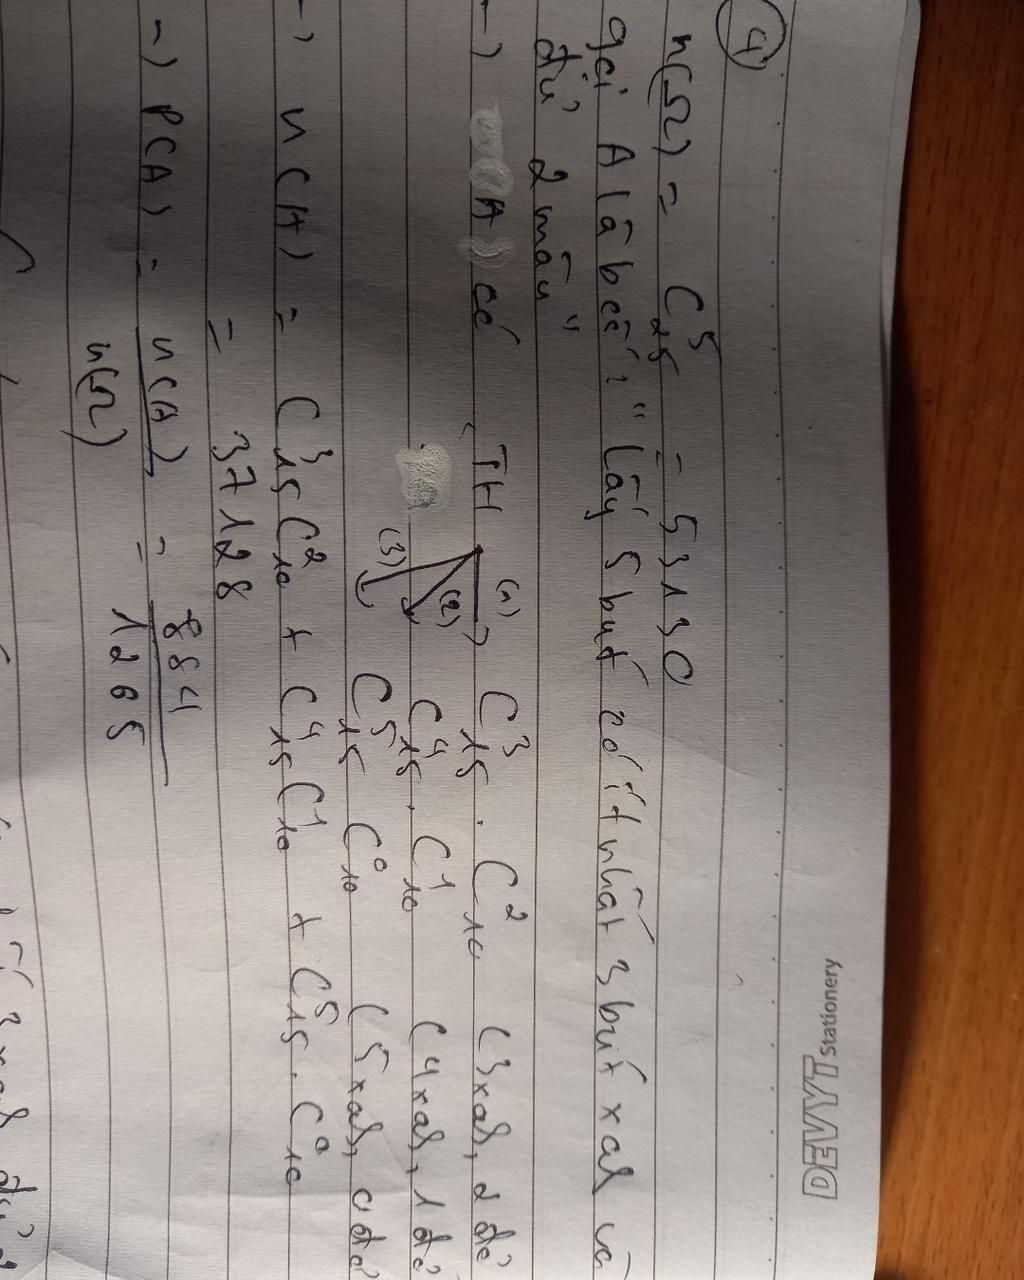 ④
n(Ω) = C⁵₂₅ = 53130
gọi A là bcố: "Lấy 5 bút có ít nhất 3 bút xanh và
đủ 2 màu"
→ A có TH (1) → C³₁₅ . C²₁₀ (3 xanh, 2 đỏ
(2) → C⁴₁₅ . C¹₁₀ (4 xanh, 1 đỏ
(3) → C⁵₁₅ C⁰₁₀ (5 xanh, 0 đỏ
→ n(A) = C³₁₅ C²₁₀ + C⁴₁₅ C¹₁₀ + C⁵₁₅ . C⁰₁₀
= 37128
→ P(A) = n(A)/n(Ω) = 884/1265
DEVYT Stationery